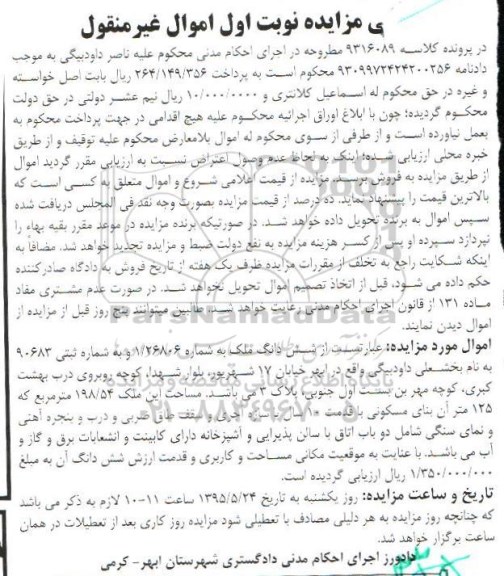 ی مزایده نوبت اول اموال غیرمنقول
در پرونده کلاسه ۹۳۱۶۰۸۹ مطروحه در اجرای احکام مدنی محکوم علیه ناصر داودبیگی به موجب
دادنامه ۹۳۰۹۹۷۲۴۲۴۲۰۰۲۵۶ محکوم است به پرداخت ۲۶۴/۱۴۹/۳۵۶ ریال بابت اصل خواسته
و غیره در حق محکوم له اسماعیل کلانتری و ۱۰/۰۰۰/۰۰۰ ریال نیم عشر دولتی در حق دولت
محکوم گردیده؛ چون با ابلاغ اوراق اجرائیه محکوم علیه هیچ اقدامی در جهت پرداخت محکوم به
بعمل نیاورده است و از طرفی از سوی محکوم له اموال بلامعارض محکوم علیه توقیف و از طریق
خبره محلی ارزیابی شده؛ اینک به لحاظ عدم وصول اعتراض نسبت به ارزیابی مقرر گردید اموال
از طریق مزایده به فروش برسد. مزایده از قیمت اعلامی شروع و اموال متعلق به کسی است که
بالاترین قیمت را پیشنهاد نماید. ده درصد از قیمت مزایده بصورت وجه نقد فی المجلس دریافت شده
سپس اموال به برنده تحویل داده خواهد شد. در صورتیکه برنده مزایده در موعد مقرر بقیه بهاء را
نپردازد سپرده او پس از کسر هزینه مزایده به نفع دولت ضبط و مزایده تجدید خواهد شد. مضافا به
اینکه شکایت راجع به تخلف از مقررات مزایده ظرف یک هفته از تاریخ فروش به دادگاه صادرکننده
حکم داده می شود، قبل از اتخاذ تصمیم اموال تحویل نخواهد شد. در صورت عدم مشتری مفاد
ماده ۱۳۱ از قانون اجرای احکام مدنی رعایت خواهد شد. طالبین میتوانند پنج روز قبل از مزایده از
اموال دیدن نمایند.
اموال مورد مزایده: عبارتست از شش دانگ ملک به شماره ۱/۲۶۸۰۶ و به شماره ثبتی ۹۰۶۸۳
به نام بخشعلی داودبیگی واقع در ابهر خیابان ۱۷ شهریور، بلوار شهدا، کوچه روبروی درب بهشت
کبری، کوچه مهر بن بست اول جنوبی، پلاک ۳ می باشد. مساحت این ملک ۱۹۸/۵۴ مترمربع که
۱۲۵ متر آن بنای مسکونی با قدمت سقف طاق ضربی و درب و پنجره آهنی
و نمای سنگی شامل دو باب اتاق با سالن پذیرایی و آشپزخانه دارای کابینت و انشعابات برق و گاز و
آب می باشد. با عنایت به موقعیت مکانی مساحت و کاربری و قدمت ارزش شش دانگ آن به مبلغ
۱/۳۵۰/۰۰۰/۰۰۰ ریال ارزیابی گردیده است.
تاریخ و ساعت مزایده: روز یکشنبه به تاریخ ۱۳۹۵/۵/۲۴ ساعت ۱۱-۱۰ لازم به ذکر می باشد
که چنانچه روز مزایده به هر دلیلی مصادف با تعطیلی شود مزایده روز کاری بعد از تعطیلات در همان
ساعت برگزار خواهد شد.
دادورز اجرای احکام مدنی دادگستری شهرستان ابهر- کرمی
ParsNamadData
پایگاه اطلاع رسانی مناقصه و مزایده
۰۲۱-۸۸۳۴۹۶۷۰